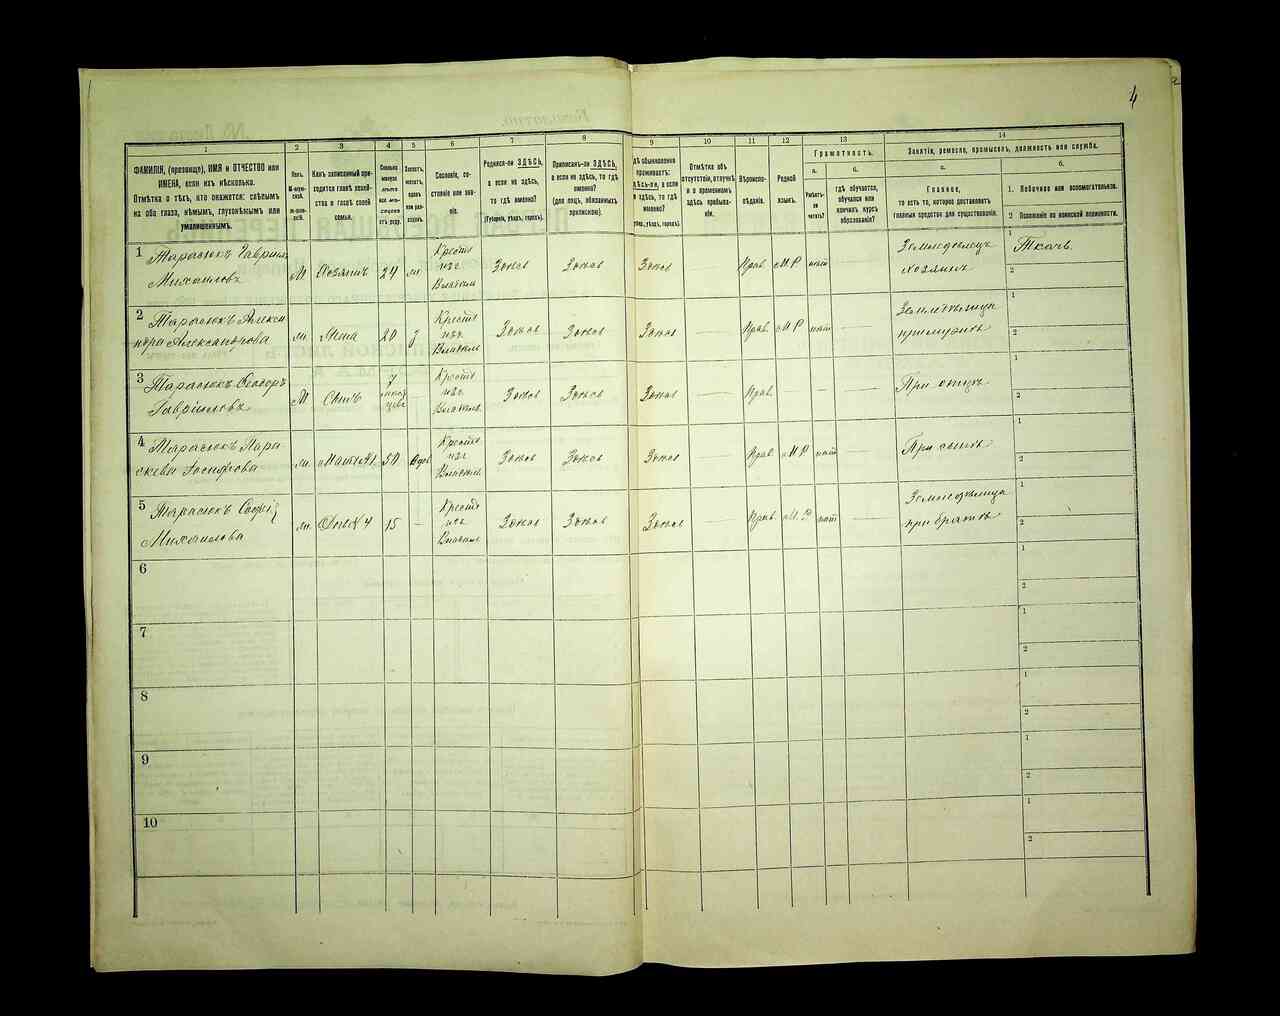 4
1 2 3 4 5 6 7 8 9 10 11 12 13 14
ФАМИЛІЯ, (прозвище), ИМЯ и ОТЧЕСТВО или
ИМЕНА, если ихъ нѣсколько.
Отмѣтка о тѣхъ, кто окажется: слѣпымъ
на оба глаза, нѣмымъ, глухонѣмымъ или
умалишеннымъ.
Полъ.
М-мужской.
ж-женскій.
Какъ записанный приходится
главѣ хозяйства
и главѣ своей
семьи.
Сколько
минуло
лѣтъ
или мѣсяцевъ
отъ роду.
Холостъ,
женатъ,
вдовъ
или разведенъ.
Сословіе, состояніе
или званіе.
Родился-ли ЗДѢСЬ,
а если не здѣсь,
то гдѣ именно?
(Губернія, уѣздъ, городъ).
Приписанъ-ли ЗДѢСЬ,
а если не здѣсь, то гдѣ
именно?
(для лицъ, обязанныхъ
припискою).
Гдѣ обыкновенно
проживаетъ:
здѣсь-ли, а если
не здѣсь, то гдѣ
именно?
(Губер., уѣздъ, городъ).
Отмѣтка объ
отсутствіи, отлучкѣ
и о временномъ
здѣсь пребываніи.
Вѣроисповѣданіе.
Родной
языкъ.
Грамотность.
а.
Умѣетъ-ли
читать?
б.
гдѣ обучается,
обучался или
кончилъ курсъ
образованія?
Занятіе, ремесло, промыселъ, должность или служба.
а.
Главное,
то есть то, которое доставляетъ
главныя средства для существованія.
б.
1. Побочное или вспомогательное.
2. Положеніе по воинской повинности.
1 Тарасюкъ Гавриилъ
Михаиловъ
М Хозяинъ 24 ж Крестья
изъ
Владѣл Зоков Зоков Зоков — Прав. М Р нѣт — Земледѣлецъ
хозяинъ 1 Ткачъ.
2
2 Тарасюкъ Алексан
дра Александрова
ж. Жена 20 з Крестья
изъ
Владѣл Зоков Зоков Зоков — Прав М Р нѣт — Земледѣлица
при мужѣ 1
2
3 Тарасюкъ Ѳеодоръ
Гавріиловъ
М Сынъ 7
мѣся
цевъ — Крестья
изъ
Владѣл. Зоков Зоков Зоков — Прав. — — — При отцѣ 1
2
4 Тарасюкъ Пара
скева Іосифова
ж. Мать 1 50 вдов Крестья
изъ
Владѣл. Зоков Зоков Зоков — Прав М Р нѣт — При сынѣ 1
2
5 Тарасюкъ Софія
Михаилова
ж. 15 — Крестья
изъ
Владѣл Зоков Зоков Зоков — Прав. М. Р нѣт — Земледѣлица
при братѣ 1
2
6 1
2
7 1
2
8 1
2
9 1
2
10 1
2